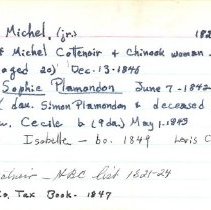 Michel, (jr.) 182
f Michel Cottenoir & Chinook woman.
aged 20) Dec. 13-1846
Sophie Plamondon June 7-1842
( dau. Simon Plamondon & deceased
w. Cecile b (9 da.) May 1, 1843
Isabelle - bo. 1849 Lewis C
noir - HBC list 1821-24
Co. Tax Book - 1847